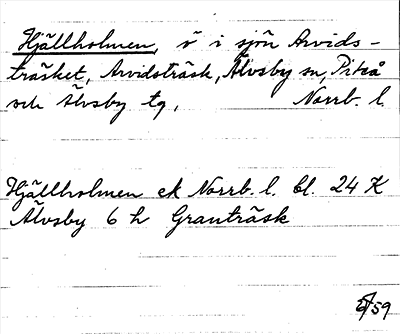 Hjällholmen, ö i sjön Arvids-
träsket, Arvidsträsk, Älvsby sn, Piteå
och Älvsby tg, Norrb. l.
Hjällholmen ek Norrb. l. bl. 24 K
Älvsby 6 h Granträsk
/59